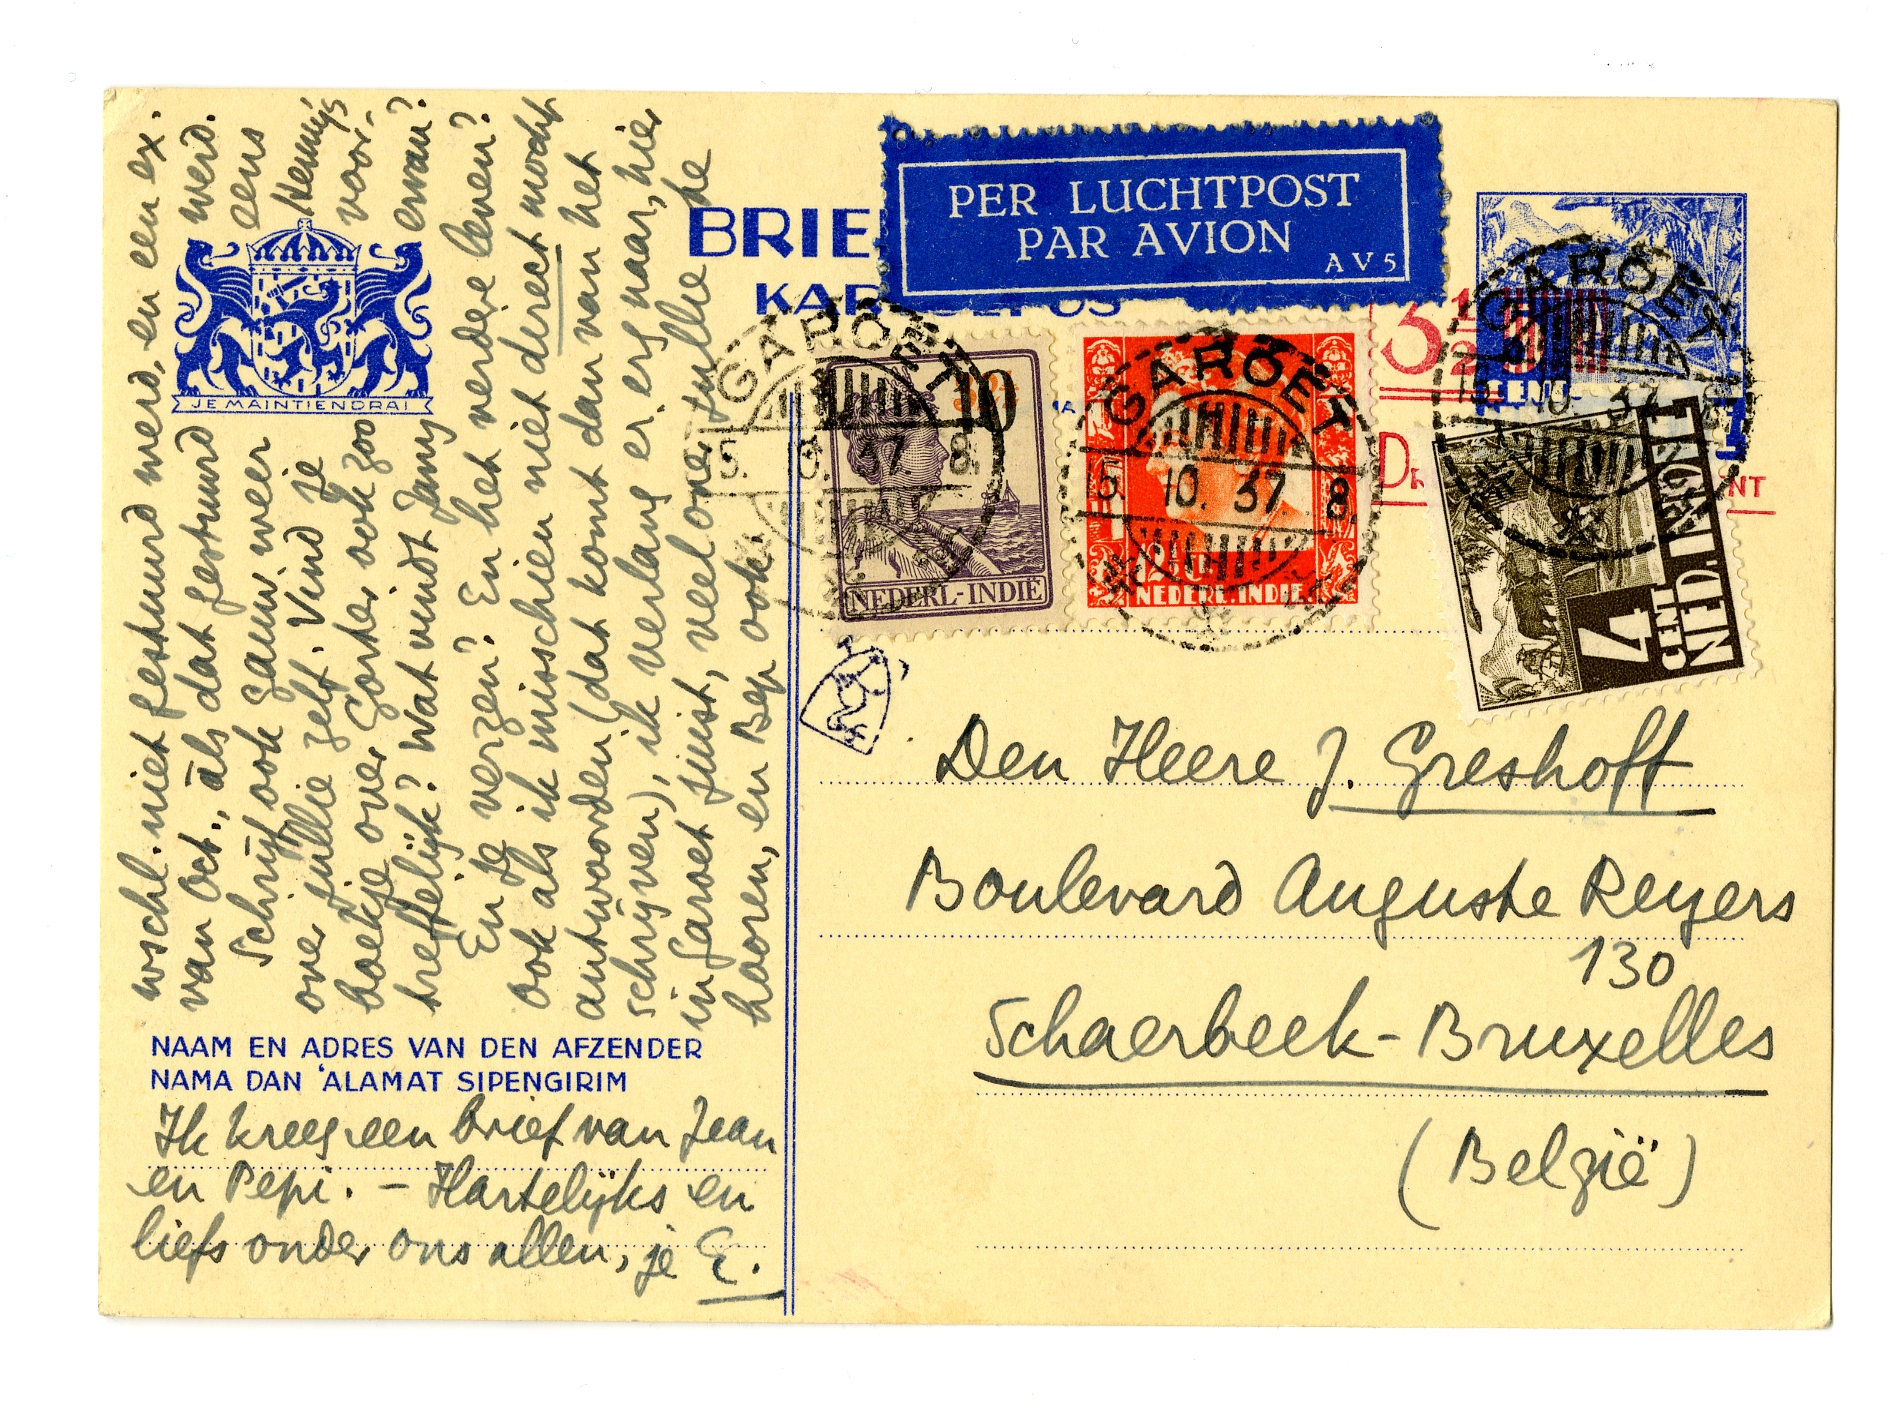 wschl. niet gestuurd werd, en een ex.
van Oct., als dat gestuurd werd.
Schrijf ook gauw weer eens
over jullie zelf. Vind je Henny's
boekje over Gorter ook zoo voor-
treffelijk? Wat vindt Jany ervan?
En de verzen? En het verdere leven?
Ook als ik misschien niet direct mocht
antwoorden (dat komt dan van het
schrijven), ik verlang er erg naar, hier
in Garoet juist, veel over jullie te
hooren, en Bep ook.
JE MAINTIENDRAI
NAAM EN ADRES VAN DEN AFZENDER
NAMA DAN 'ALAMAT SIPENGIRIM
Ik kreeg een brief van Jean
en Pepi. – Hartelijks en
liefs onder ons allen, je E.
BRIE
KAR
POS
PER LUCHTPOST
PAR AVION
AV5
10
NEDERL-INDIË
NEDERL. INDIE
3½
CENT
NED. INDIË
4
CENT
GAROET
15. 10. 37. 8.
GAROET
15. 10. 37. 8.
GAROET
15. 10. 37. 8.
Den Heere J. Greshoff
Boulevard Auguste Reyers
130
Schaerbeek-Bruxelles
(België)